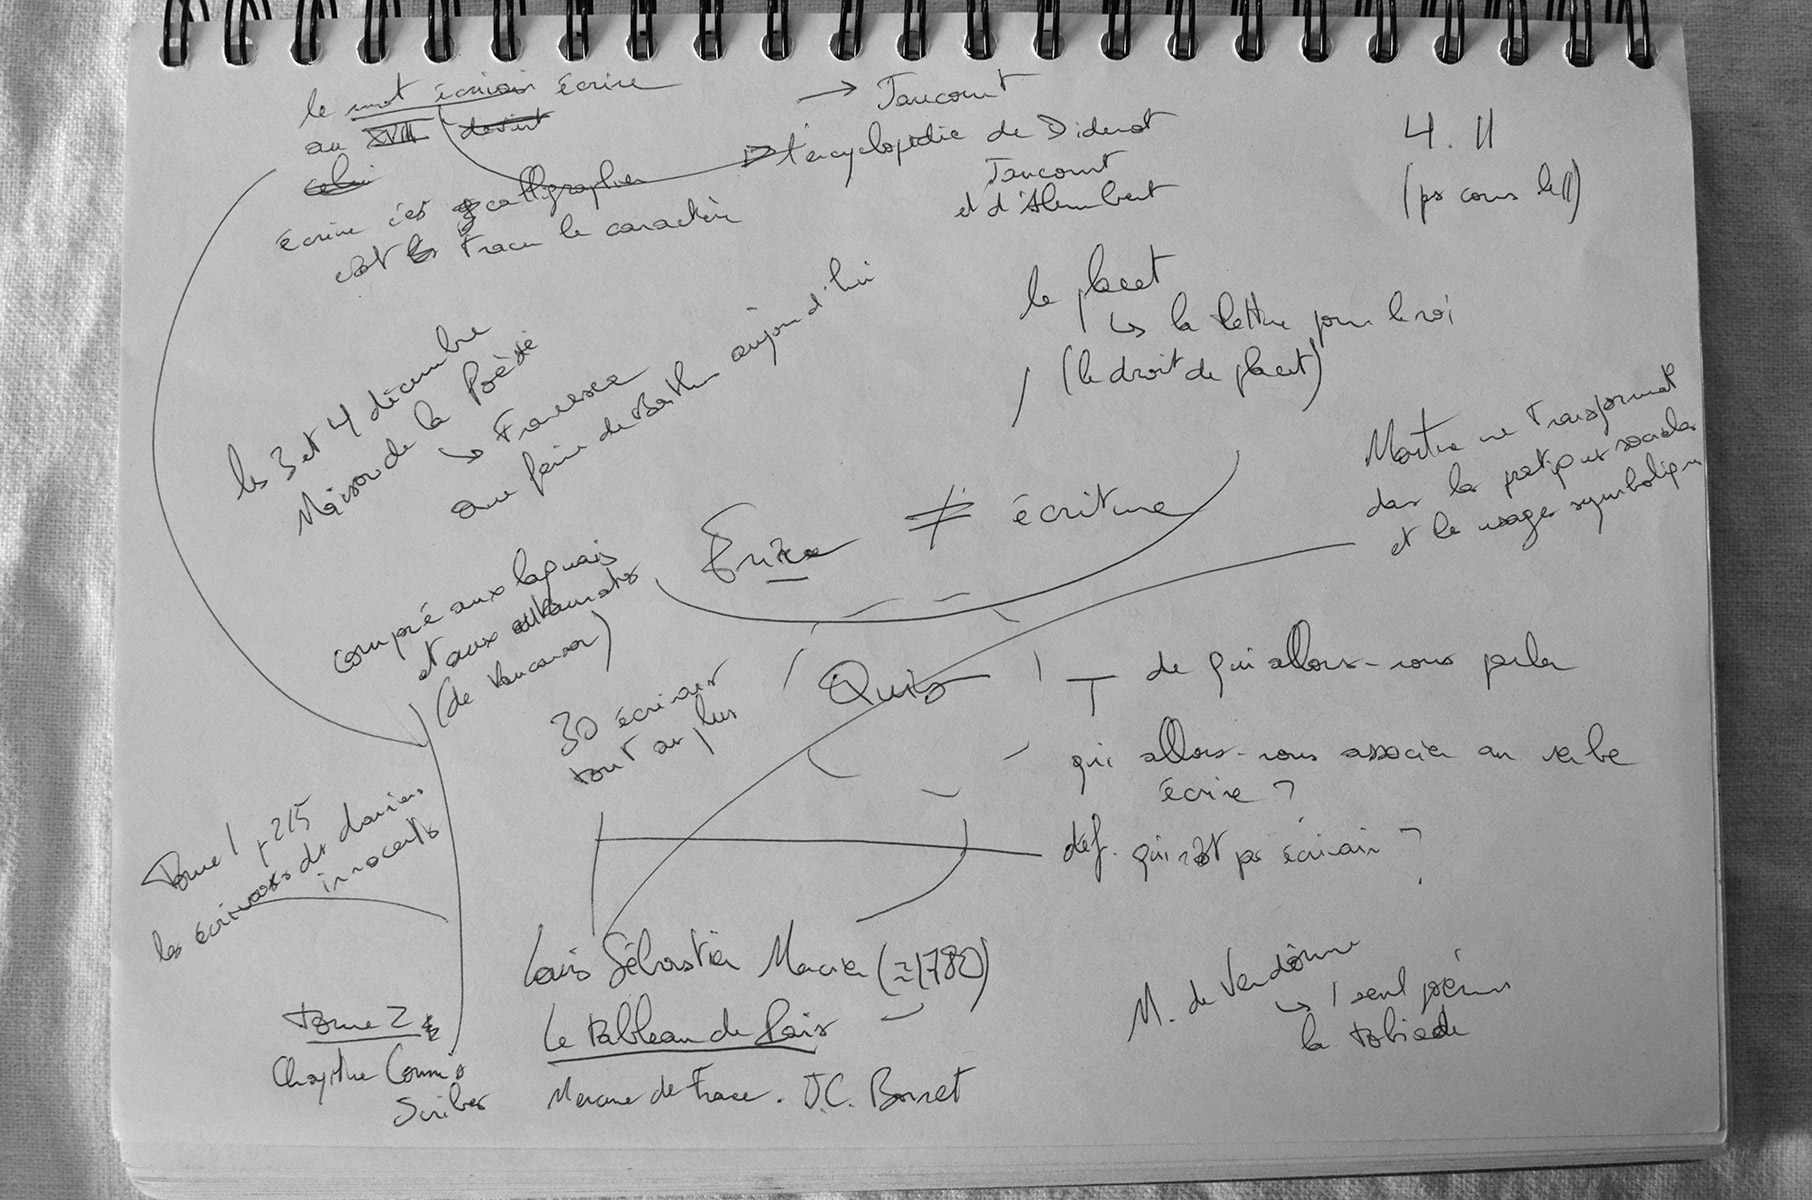 le mot écrivain écrire
au XVIII devient
celui
écrire c'est calligraphier
c'est tracer le caractère
→ Jaucourt
l'encyclopédie de Diderot
Jaucourt
et d'Alembert
4.11
(ps cours le 11)
le placet
↳ la lettre pour le roi
(le droit de placet)
les 3 et 4 décembre
Maison de la Poésie
↳ Francesca
que faire de aujourd'hui
Montre une transformat
dans les pratiques sociales
et les usages symboliques
Écrire ≠ écriture
comparé aux laquais
et aux automates
(de Vaucanson)
30 écrivains
tout au plus
Quis
de qui allons-nous parler
qui allons-nous associer au verbe
écrire ?
déf. qui n'est ps écrivain ?
Tome 1 p 215
les écrivains des charniers
innocents
Louis Sébastien Mercier (≃1780)
Le tableau de Paris
Mercure de France. J.C. Bonnet
Tome 2
Chapitre Commis
Scribes
M. de Vendôme
↳ 1 seul
la tobiade